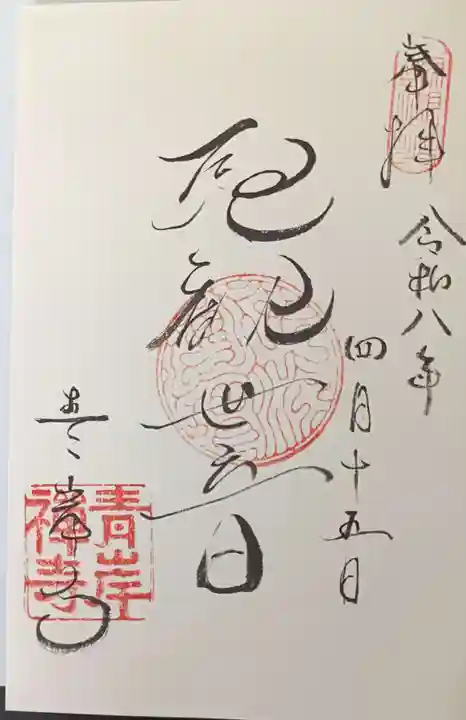 奉拝 令和八年
四月十五日
観世音
青岸寺
青岸
禅寺